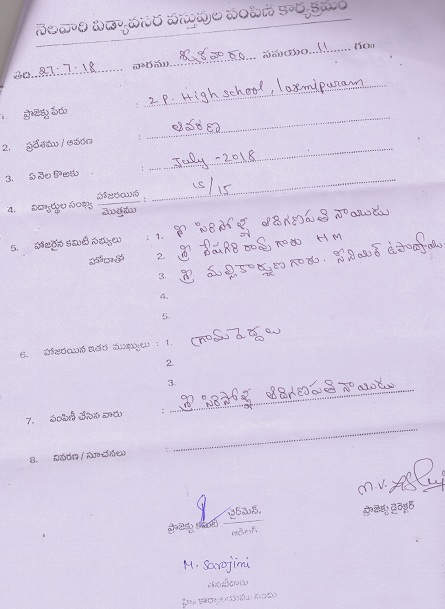 నెలవారి విద్యావసర వస్తువుల పంపిణీ కార్యక్రమం
తేది 27-7-18 వారము శుక్రవారం సమయం 11 గం॥
1. ప్రాజెక్టు పేరు : Z P. High school, laxmipuram
2. ప్రదేశము / ఆవరణ : ఆవరణ
3. ఏ నెల కొఱకు : July - 2018
4. విద్యార్థుల సంఖ్య హాజరయిన / మొత్తము : 15/15
5. హాజరైన కమిటీ సభ్యులు : 1. శ్రీ ఆదిగణపతి నాయుడు
హోదాతో 2. శ్రీ శేషగిరి రావు గారు HM
3. శ్రీ మల్లికార్జున గారు. సీనియర్ ఉపాధ్యాయ
4.
5.
6. హాజరయిన ఇతర ముఖ్యులు : 1. గ్రామ పెద్దలు
2.
3.
7. పంపిణీ చేసిన వారు : శ్రీ ఆదిగణపతి నాయుడు
8. వివరణ / సూచనలు :
M.V.
ప్రాజెక్టు కమిటీ ఛైర్మెన్, ప్రాజెక్టు డైరెక్టర్
M. Sarojini